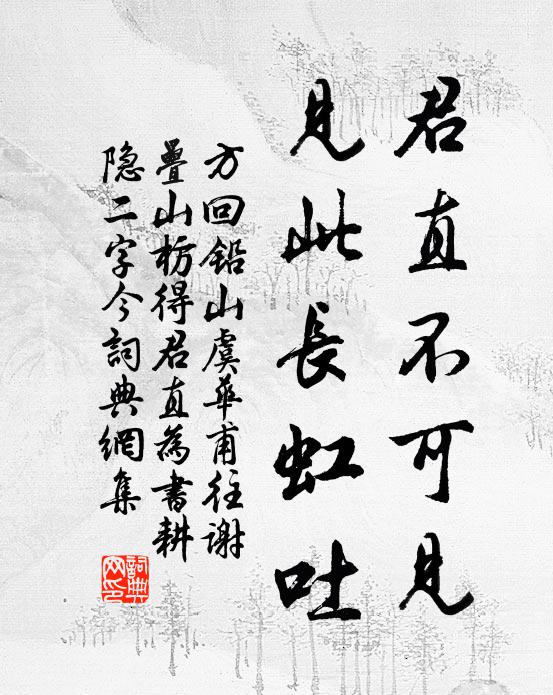 君直不可見
見此長虹吐
方回鉛山虞華甫往謝
疊山枋得君直為書耕
隐二字今詞典網集
詞典网印